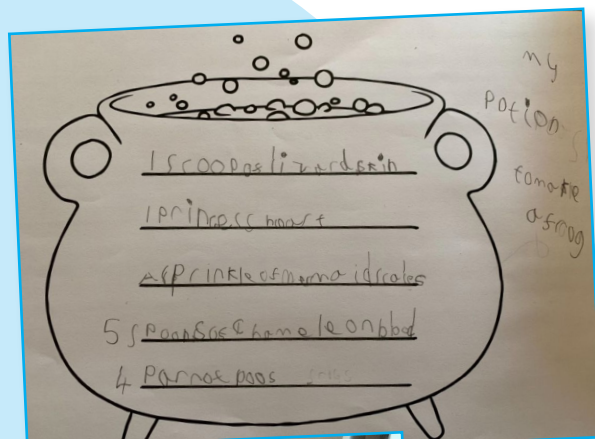 my
potion
to make
a frog
1 scoop of lizard skin
1 princess heart
a sprinkle of mermaid scales
5 spoons of Chameleon blod
4 Parrot poos